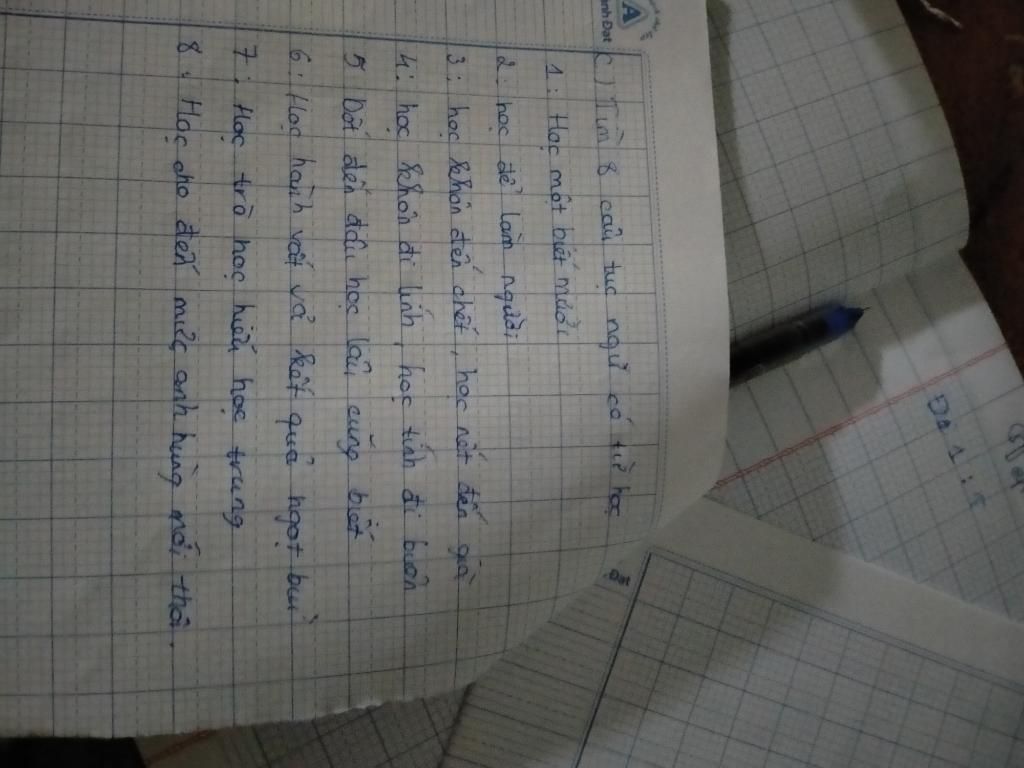 C) Tìm 8 câu tục ngữ có từ học
1: Học một biết mười
2: học để làm người
3: học khôn đến chết, học nết đến già
4: học khôn đi lính, học tính đi buôn
5 Dốt đến đâu học lâu cũng biết
6: Học hành vất vả kết quả ngọt bùi
7: Học trò học hiếu học trung
8: Học cho đến mức anh hùng mới thôi.
Đạt
A
Đạt
Đề 1: